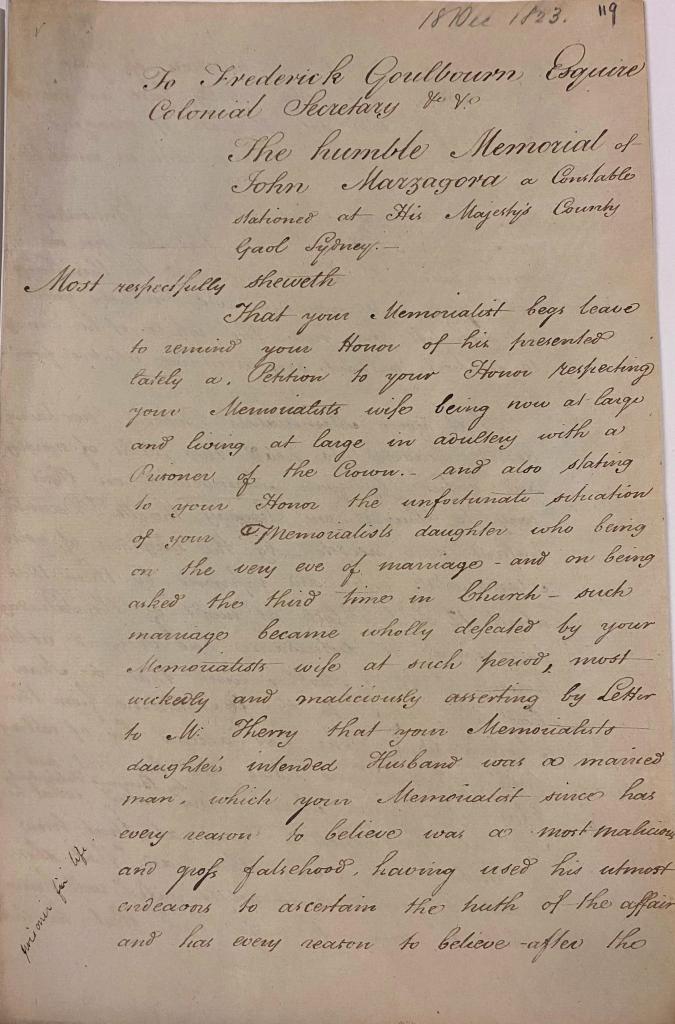 18 Dec 1823. 119
To Frederick Goulbourn Esquire
Colonial Secretary &c &c
The humble Memorial of
John Marzagora a Constable
stationed at His Majesty's County
Gaol Sydney.—
Most respectfully sheweth
That your Memorialist begs leave
to remind your Honor of his presented
lately a. Petition to your Honor respecting
your Memorialists wife being now at large
and living at large in adultery with a
Prisoner of the Crown.- and also stating
to your Honor the unfortunate situation
of your Memorialists daughter who being
on the very eve of marriage - and on being
asked the third time in Church - such
marriage became wholly defeated by your
Memorialists wife at such period, most
wickedly and maliciously asserting by Letter
to Mr. Therry that your Memorialists
daughter's intended Husband was a married
man, which your Memorialist since has
every reason to believe was a most malicious
and gross falsehood, having used his utmost
endeavors to ascertain the truth of the affair
and has every reason to believe - after the
prisoner for life.